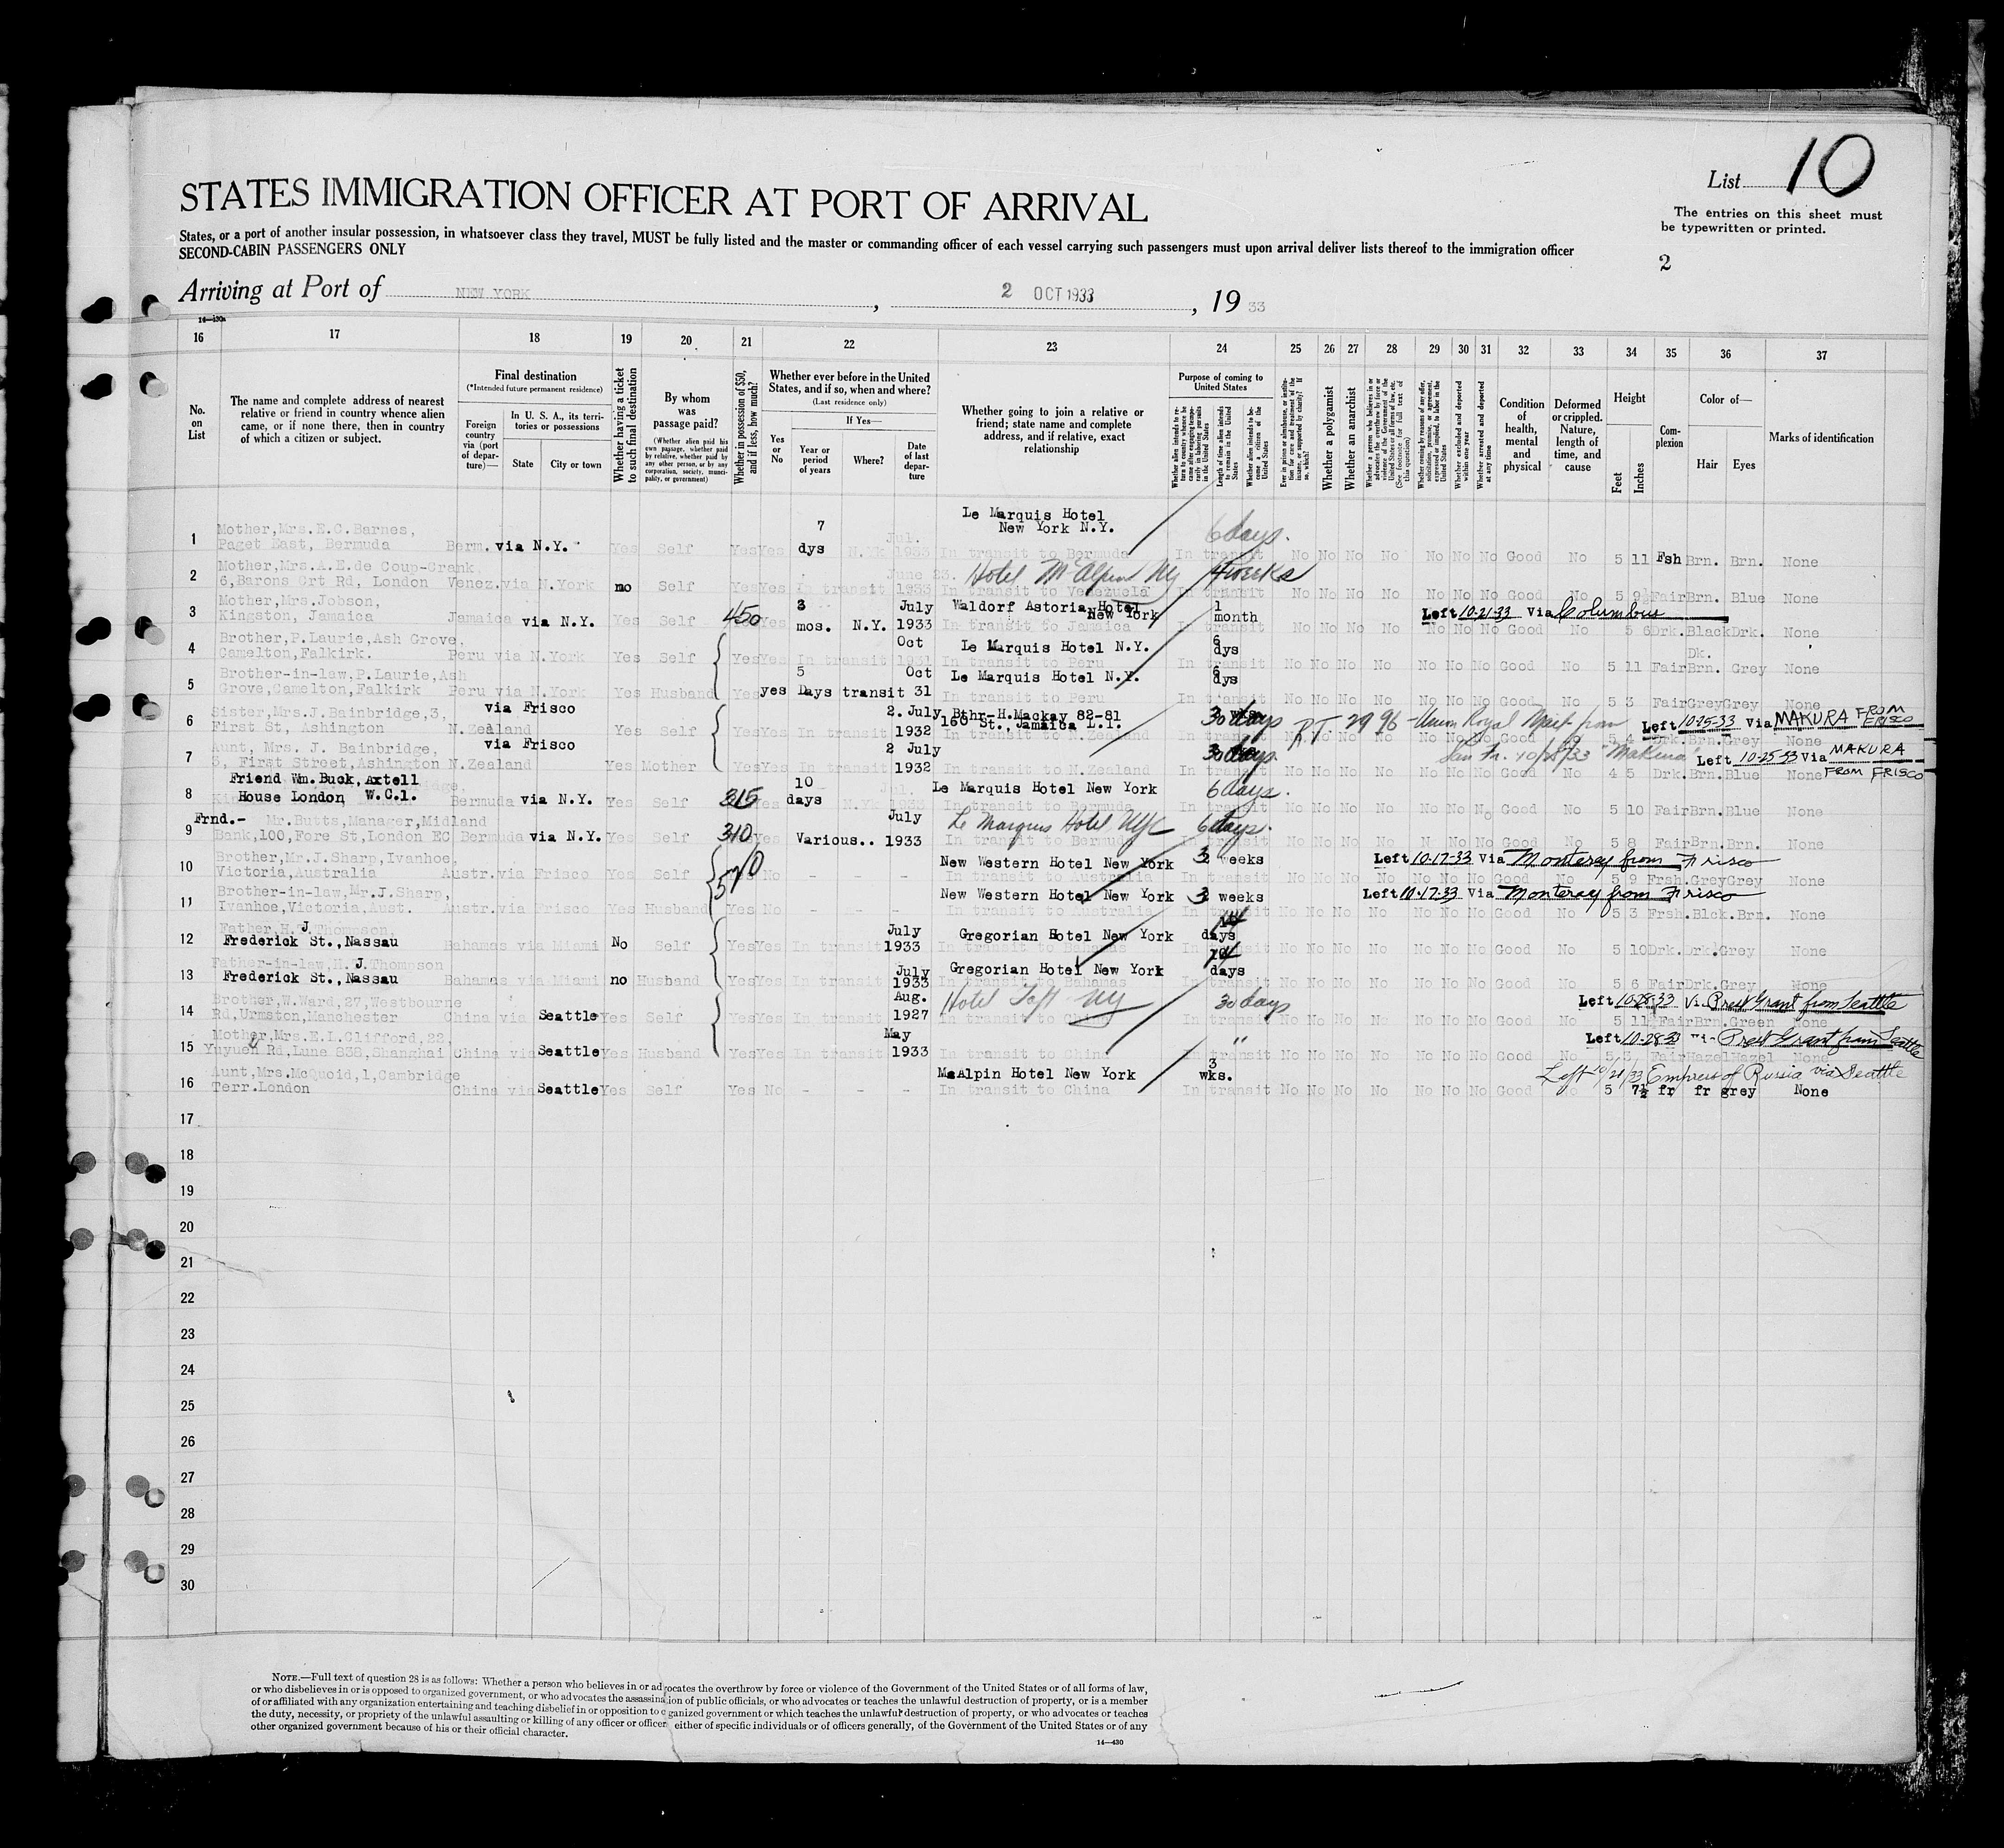 List 10
STATES IMMIGRATION OFFICER AT PORT OF ARRIVAL
The entries on this sheet must be typewritten or printed.
States, or a port of another insular possession, in whatsoever class they travel, MUST be fully listed and the master or commanding officer of each vessel carrying such passengers must upon arrival deliver lists thereof to the immigration officer
SECOND-CABIN PASSENGERS ONLY
2
Arriving at Port of NEW YORK, 2 OCT 1933, 19 33
14—430a
16 17 18 19 20 21 22 23 24 25 26 27 28 29 30 31 32 33 34 35 36 37
No. on List
The name and complete address of nearest relative or friend in country whence alien came, or if none there, then in country of which a citizen or subject.
Final destination
(*Intended future permanent residence)
Foreign country via (port of departure)—
In U. S. A., its territories or possessions
State
City or town
Whether having a ticket to such final destination
By whom was passage paid?
(Whether alien paid his own passage, whether paid by relative, whether paid by any other person, or by any corporation, society, municipality, or government)
Whether in possession of $50, and if less, how much?
Whether ever before in the United States, and if so, when and where?
(Last residence only)
Yes or No
If Yes—
Year or period of years
Where?
Date of last departure
Whether going to join a relative or friend; state name and complete address, and if relative, exact relationship
Purpose of coming to United States
Whether alien intends to return to country whence he came after engaging temporarily in laboring pursuits in the United States
Length of time alien intends to remain in the United States
Whether alien intends to become a citizen of the United States
Ever in prison or almshouse, or institution for care and treatment of the insane, or supported by charity? If so, which?
Whether a polygamist
Whether an anarchist
Whether a person who believes in or advocates the overthrow by force or violence of the Government of the United States or all forms of law, etc. (See footnote for full text of this question)
Whether coming by reasons of any offer, solicitation, promise, or agreement, expressed or implied, to labor in the United States
Whether excluded and deported within one year
Whether arrested and deported at any time
Condition of health, mental and physical
Deformed or crippled. Nature, length of time, and cause
Height
Feet
Inches
Complexion
Color of—
Hair
Eyes
Marks of identification
1 Mother,Mrs.E.C.Barnes, Paget East, Bermuda Berm. via N.Y. Yes Self Yes Yes 7 dys N.Yk Jul. 1933 Le Marquis Hotel New York N.Y. In transit to Bermuda 6 days. In transit No No No No No No No Good No 5 11 Fsh Brn. Brn. None
2 Mother,Mrs.A.E.de Coup-Crank, 6,Barons Crt Rd, London Venez.via N.York no Self Yes Yes In transit June 23. 1933 Hotel McAlpin NY In transit to Venezuela 4 weeks In transit No No No No No No No Good No 5 9 Fair Brn. Blue None
3 Mother,Mrs.Jobson, Kingston, Jamaica Jamaica via N.Y. Yes Self 450 Yes 3 mos. N.Y. July 1933 Waldorf Astoria Hotel New York In transit to Jamaica 1 month In transit No No No No No No No Good No 5 6 Drk. Black Drk. None
Left 10-21-33 Via Columbus
4 Brother,P.Laurie,Ash Grove, Camelton,Falkirk. Peru via N.York Yes Self Yes Yes In transit Oct 1931 Le Marquis Hotel N.Y. In transit to Peru 6 dys In transit No No No No No No No Good No 5 11 Fair Dk. Brn. Grey None
5 Brother-in-law,P.Laurie,Ash Grove,Camelton,Falkirk Peru via N.York Yes Husband Yes yes 5 Days transit Oct 31 Le Marquis Hotel N.Y. In transit to Peru 6 dys In transit No No No No No No No Good No 5 3 Fair Grey Grey None
6 Sister,Mrs.J.Bainbridge,3, First St, Ashington via Frisco N.Zealand Yes Self Yes Yes In transit 2. July 1932 H.Mackay 82-81 160 St., Jamaica L.I. In transit to N.Zealand 30 days No No No No No No No Good No 5 4 Drk. Brn. Grey None
Left 10-25-33 Via MAKURA FROM FRISCO
7 Aunt, Mrs. J. Bainbridge, 3, First Street,Ashington via Frisco N.Zealand Yes Mother Yes Yes In transit 2 July 1932 In transit to N.Zealand 30 days. In transit No No No No No No No Good No 4 5 Drk. Brn. Blue None
San Fr. 10/25/33 "Makura" Left 10-25-33 Via MAKURA FROM FRISCO
8 Friend Wm.Buck,Axtell House London W.C.1. Bermuda via N.Y. Yes Self 315 Yes 10 days N.Yk Jul. 1933 Le Marquis Hotel New York In transit to Bermuda 6 days. In transit No No No No No No No Good No 5 10 Fair Brn. Blue None
9 Frnd.- Mr.Butts,Manager,Midland Bank,100,Fore St,London EC Bermuda via N.Y. Yes Self 310 Yes Various.. July 1933 Le Marquis Hotel NYC In transit to Bermuda 6 days. In transit No No No No N No No Good No 5 8 Fair Brn. Brn. None
10 Brother,Mr.J.Sharp,Ivanhoe, Victoria,Australia Austr.via Frisco Yes Self 570 No - - - New Western Hotel New York In transit to Australia 3 weeks In transit No No No No No No No Good No 5 9 Frsh. Grey Grey None
Left 10-17-33 Via Monteray from Frisco
11 Brother-in-law,Mr.J.Sharp, Ivanhoe,Victoria,Aust. Austr.via Frisco Yes Husband Yes No - - - New Western Hotel New York In transit to Australia 3 weeks In transit No No No No No No No Good No 5 3 Frsh. Blck. Brn. None
Left 10-17-33 Via Monteray from Frisco
12 Father,H.J.Thompson, Frederick St.,Nassau Bahamas via Miami No Self Yes Yes In transit July 1933 Gregorian Hotel New York In transit to Bahamas 14 days In transit No No No No No No No Good No 5 10 Drk. Drk. Grey None
13 Father-in-law,H.J.Thompson Frederick St.,Nassau Bahamas via Miami no Husband Yes Yes In transit July 1933 Gregorian Hotel New York In transit to Bahamas 14 days In transit No No No No No No No Good No 5 6 Fair Drk. Grey None
14 Brother,W.Ward,27,Westbourne Rd,Urmston,Manchester China via Seattle Yes Self Yes Yes In transit Aug. 1927 Hotel Taft NY In transit to China 30 days In transit No No No No No No No Good No 5 11 Fair Brn. Green None
Left 10-28-33 Via Prest Grant from Seattle
15 Mother,Mrs.E.I.Clifford,22, Yuyuen Rd,Lune 838,Shanghai China via Seattle Yes Husband Yes Yes In transit May 1933 In transit to China " In transit No No No No No No No Good No 5 Fair Hazel Hazel None
Left 10-28-33 Prest Grant from Seattle
16 Aunt,Mrs.McQuoid,1,Cambridge Terr.London China via Seattle Yes Self Yes No - - - McAlpin Hotel New York In transit to China 3 wks. In transit No No No No No No No Good No 5 7½ fr fr grey None
Left 10/21/33 Empress of Russia via Seattle
17
18
19
20
21
22
23
24
25
26
27
28
29
30
NOTE.—Full text of question 28 is as follows: Whether a person who believes in or advocates the overthrow by force or violence of the Government of the United States or of all forms of law,
or who disbelieves in or is opposed to organized government, or who advocates the assassination of public officials, or who advocates or teaches the unlawful destruction of property, or is a member
of or affiliated with any organization entertaining and teaching disbelief in or opposition to organized government or which teaches the unlawful destruction of property, or who advocates or teaches
the duty, necessity, or propriety of the unlawful assaulting or killing of any officer or officers, either of specific individuals or of officers generally, of the Government of the United States or of any
other organized government because of his or their official character.
14—430